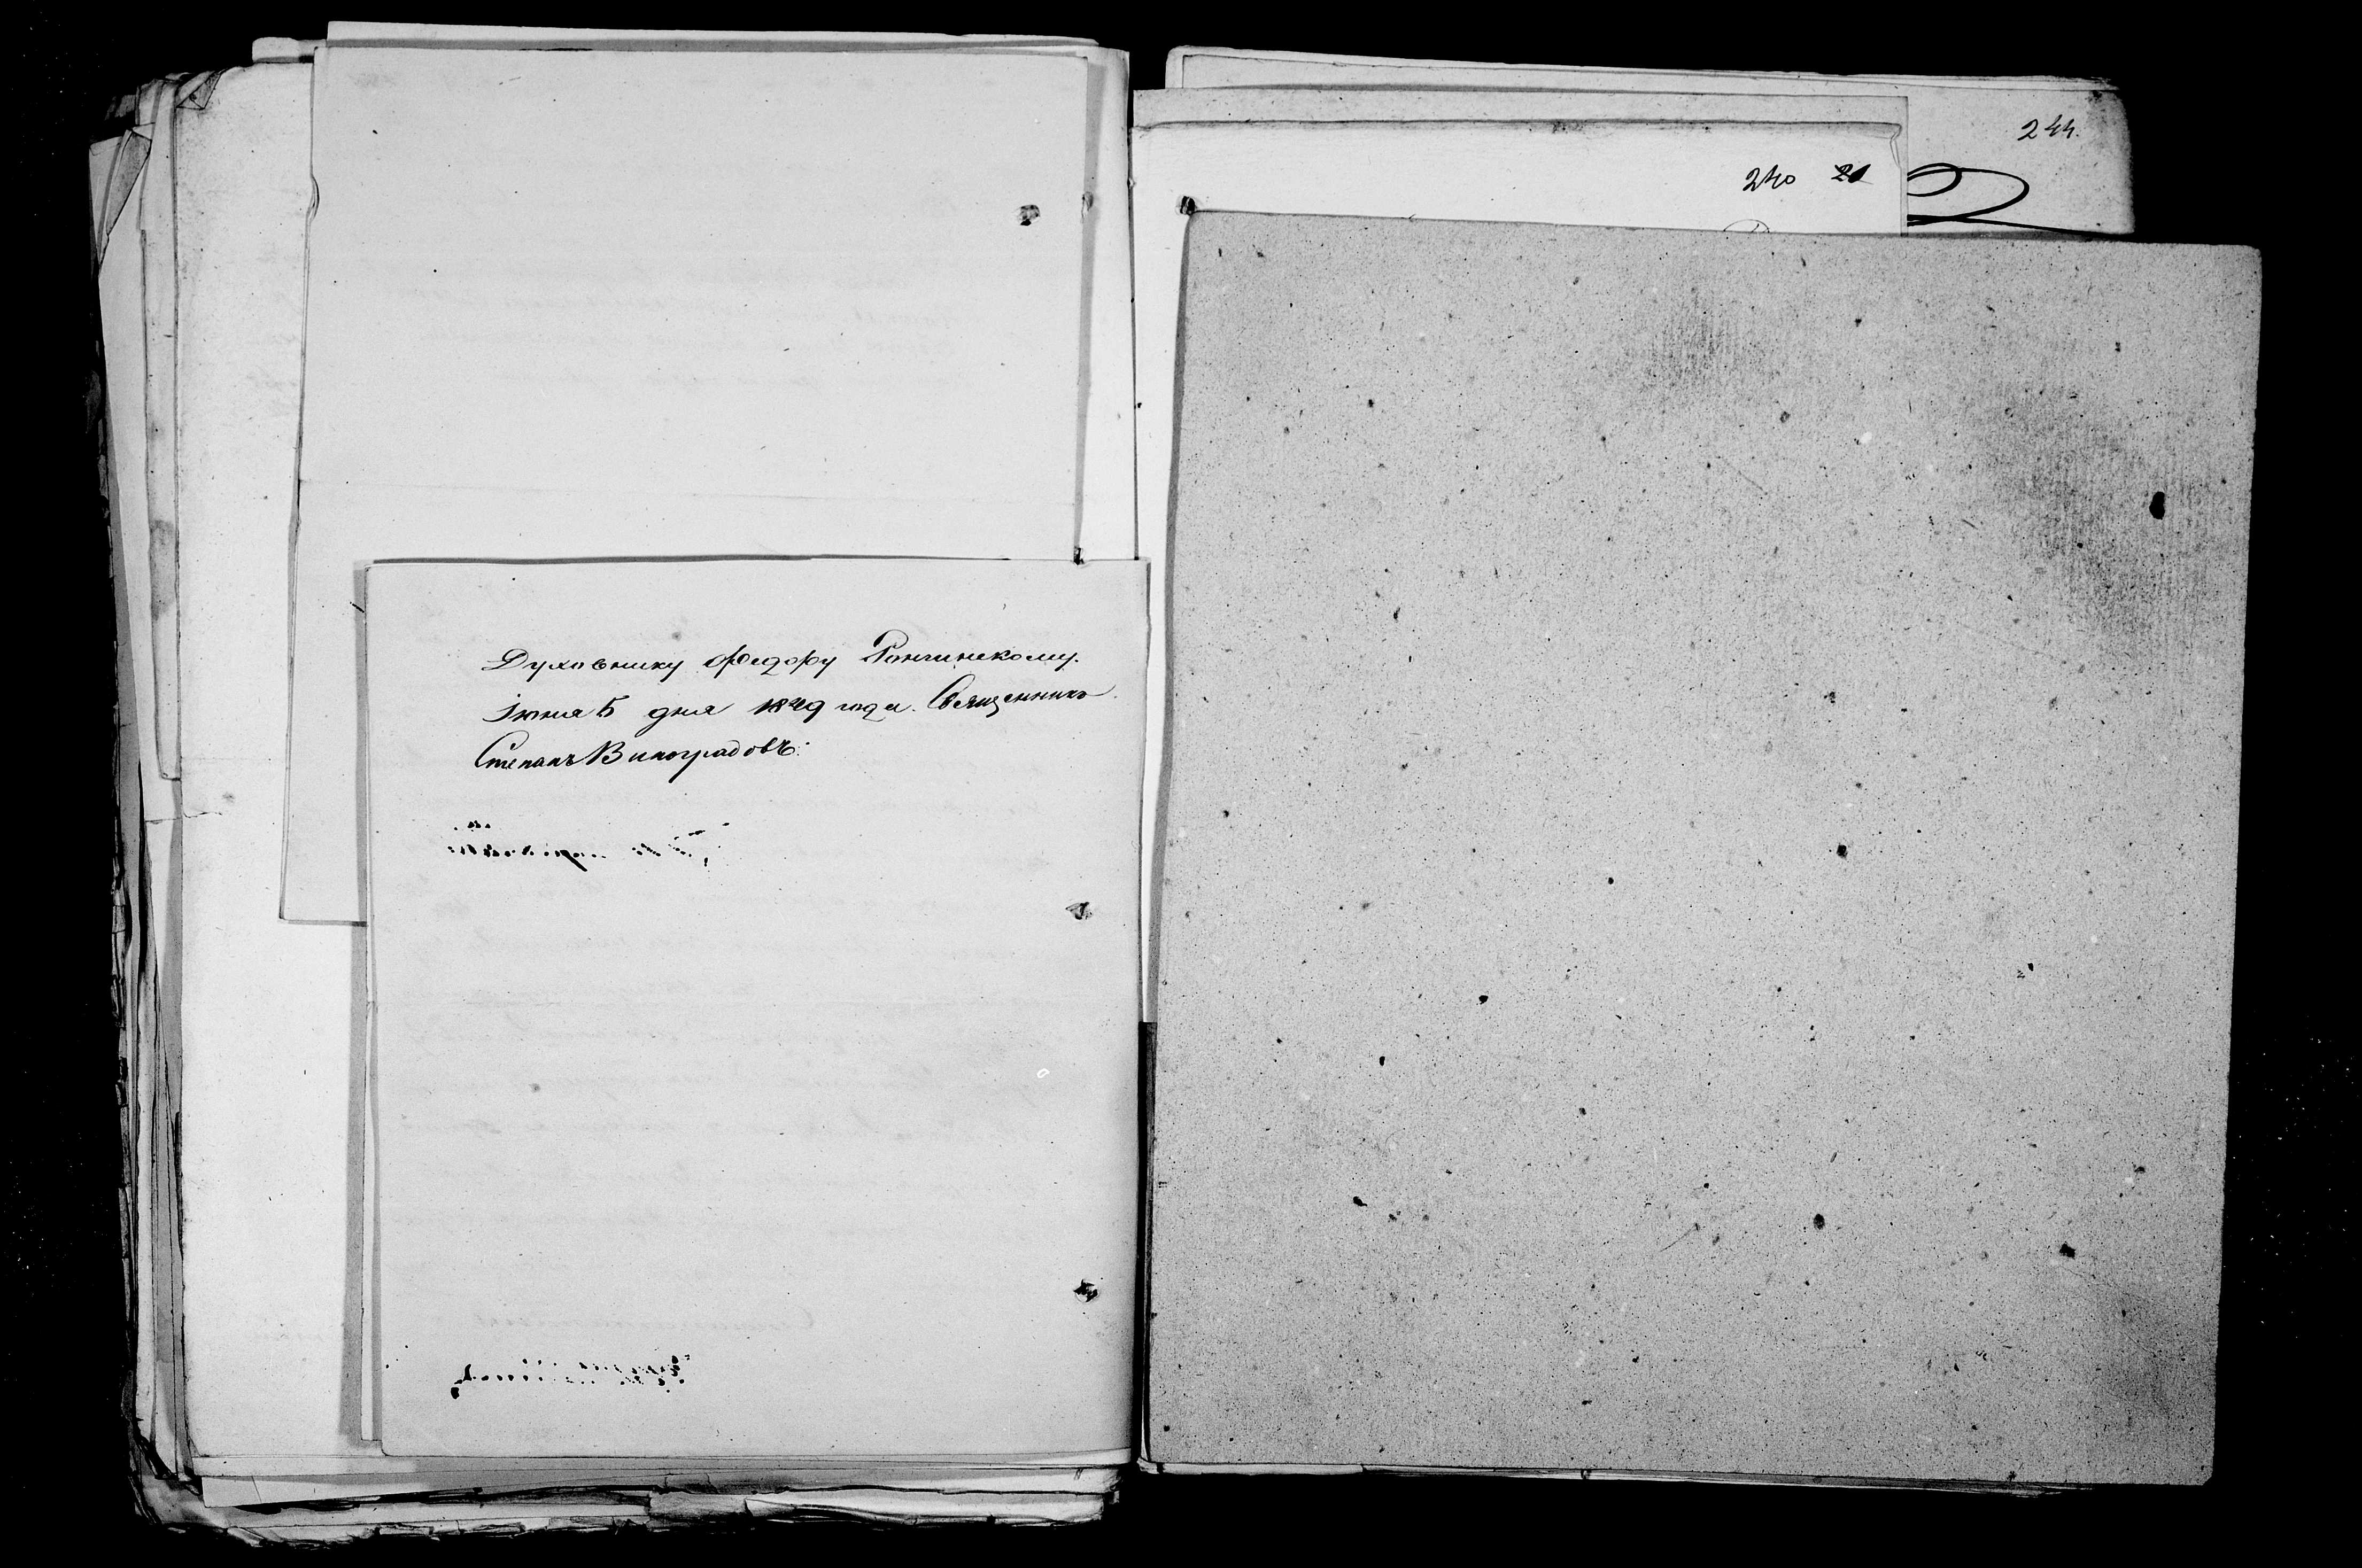 Духовнику Федору Рончинскому.
Iюня 5 дня 1849 года. Священникъ
Стефанъ Виноградовъ.
244.
240 21